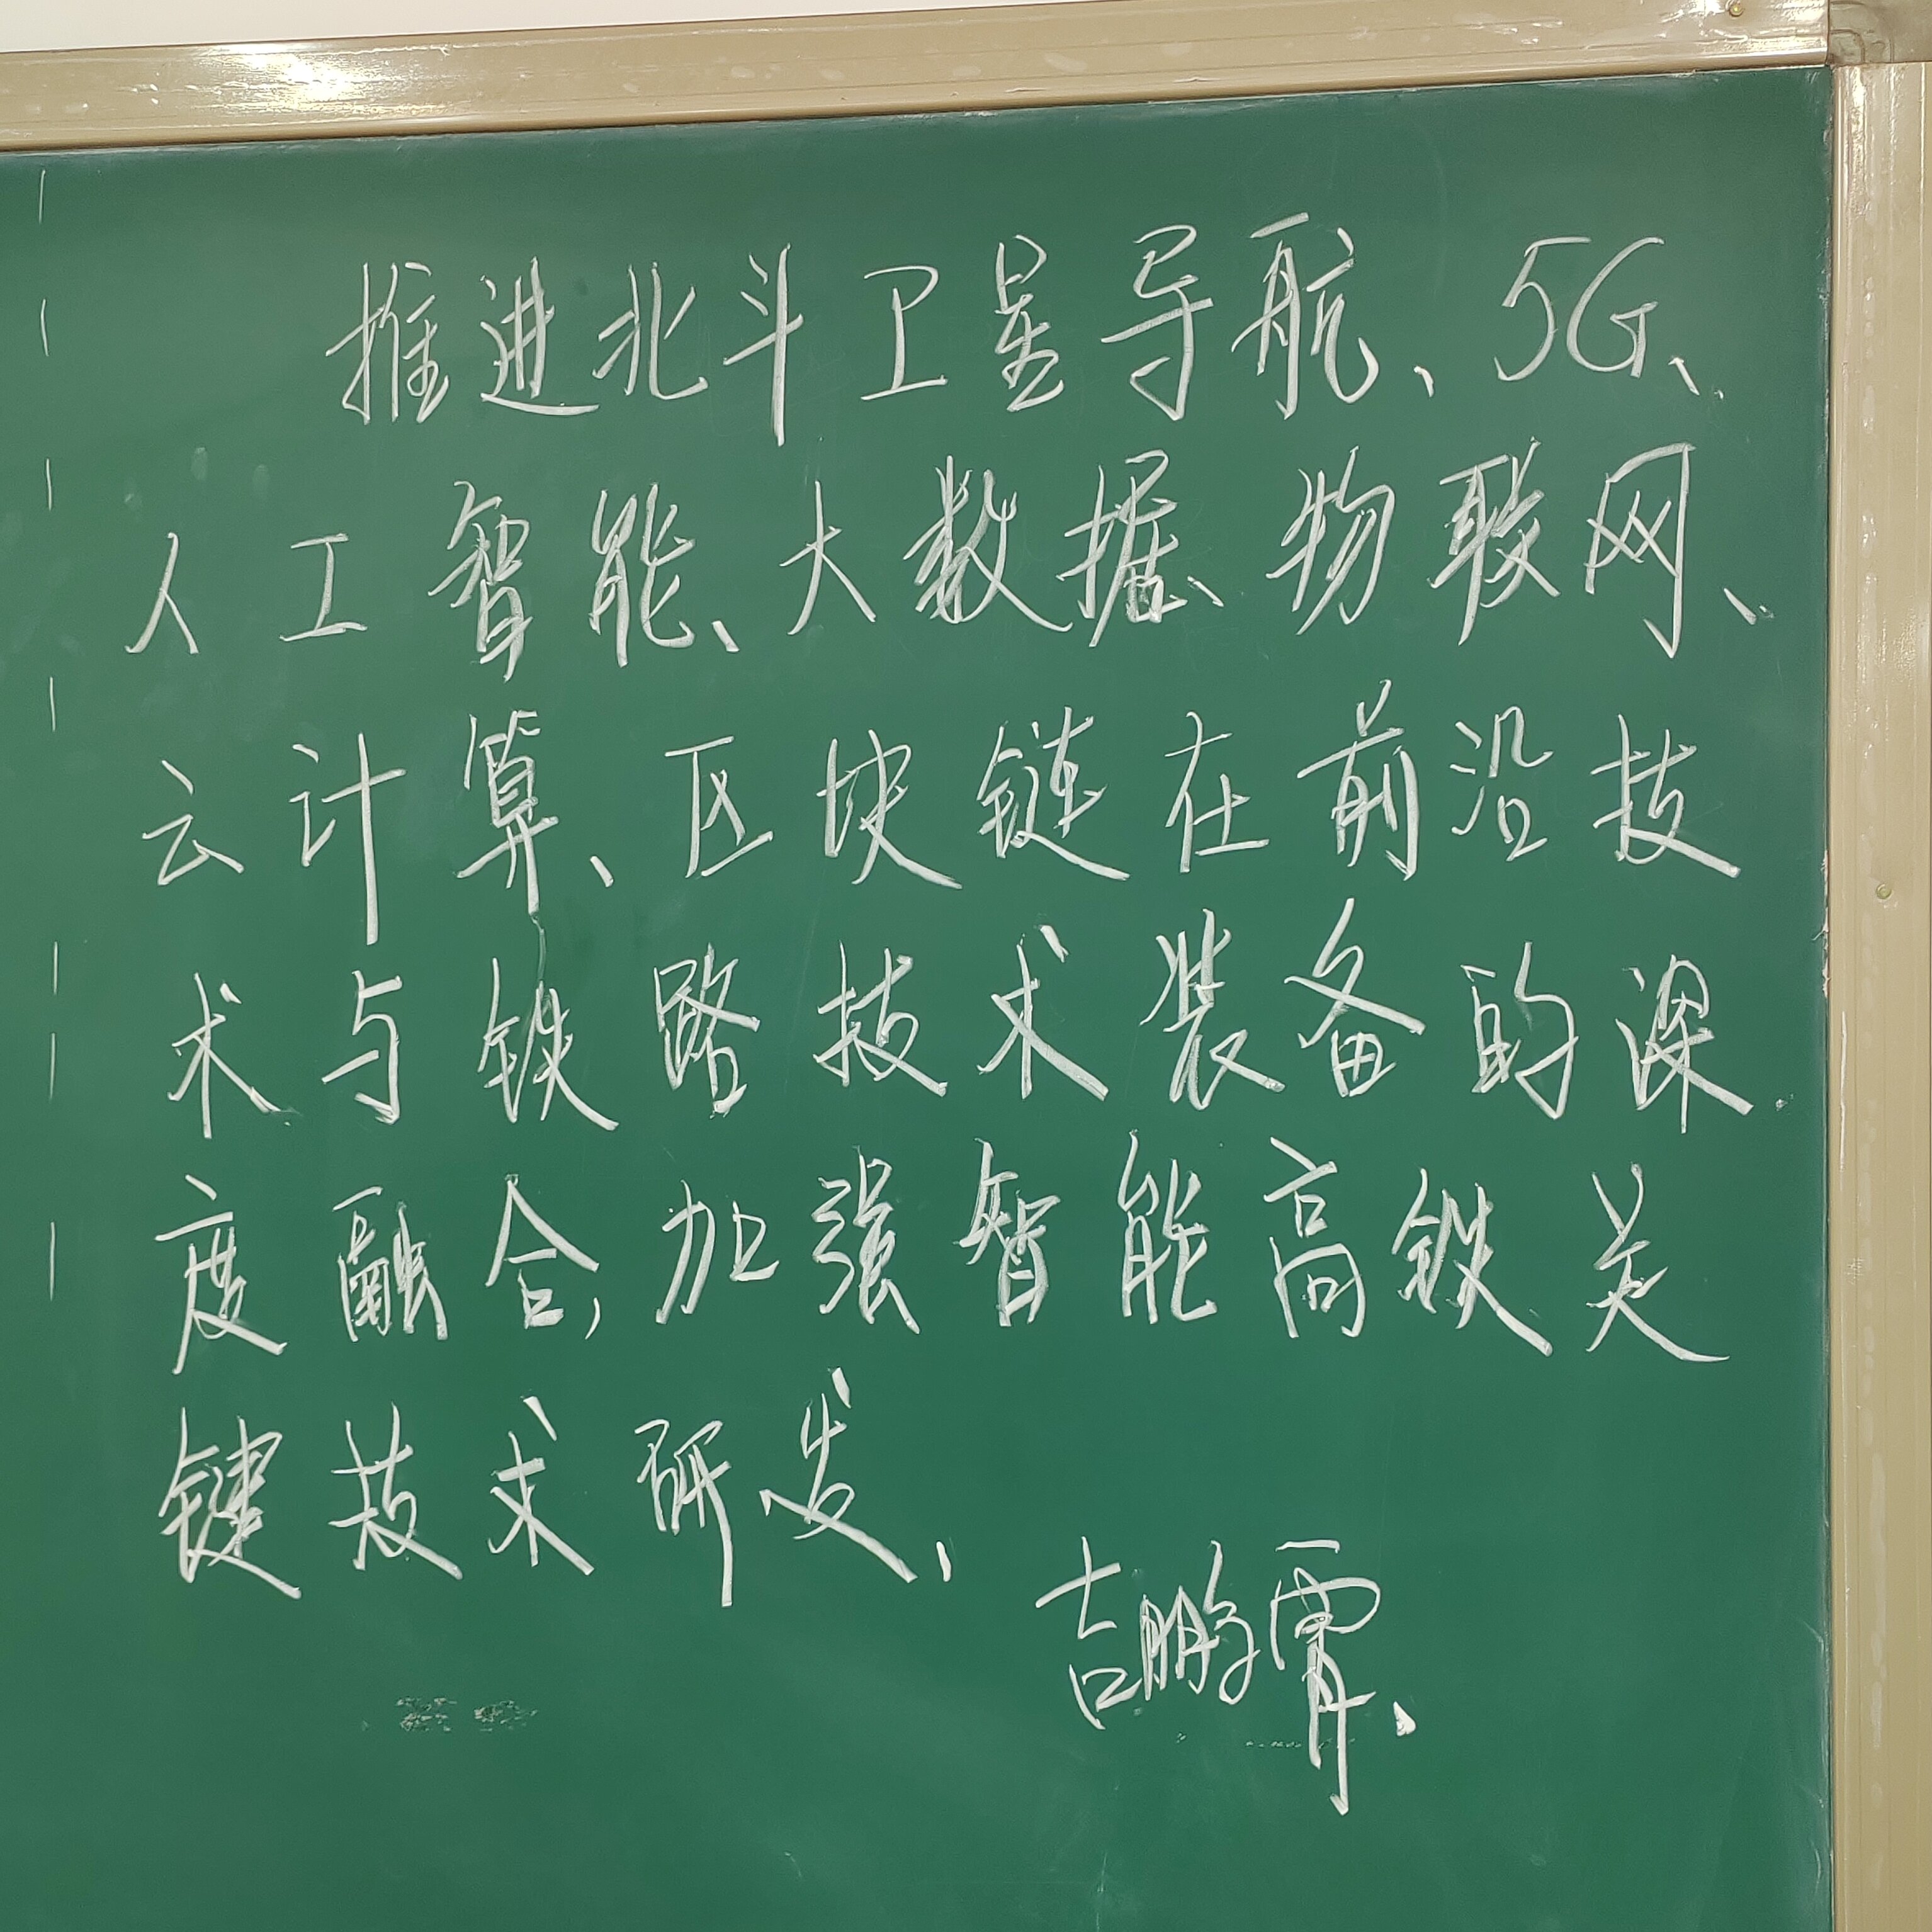 推进北斗卫星导航、5G、
人工智能、大数据、物联网、
云计算、区块链在前沿技
术与铁路技术装备的深
度融合,加强智能高铁关
键技术研发、
吉鹏霄、